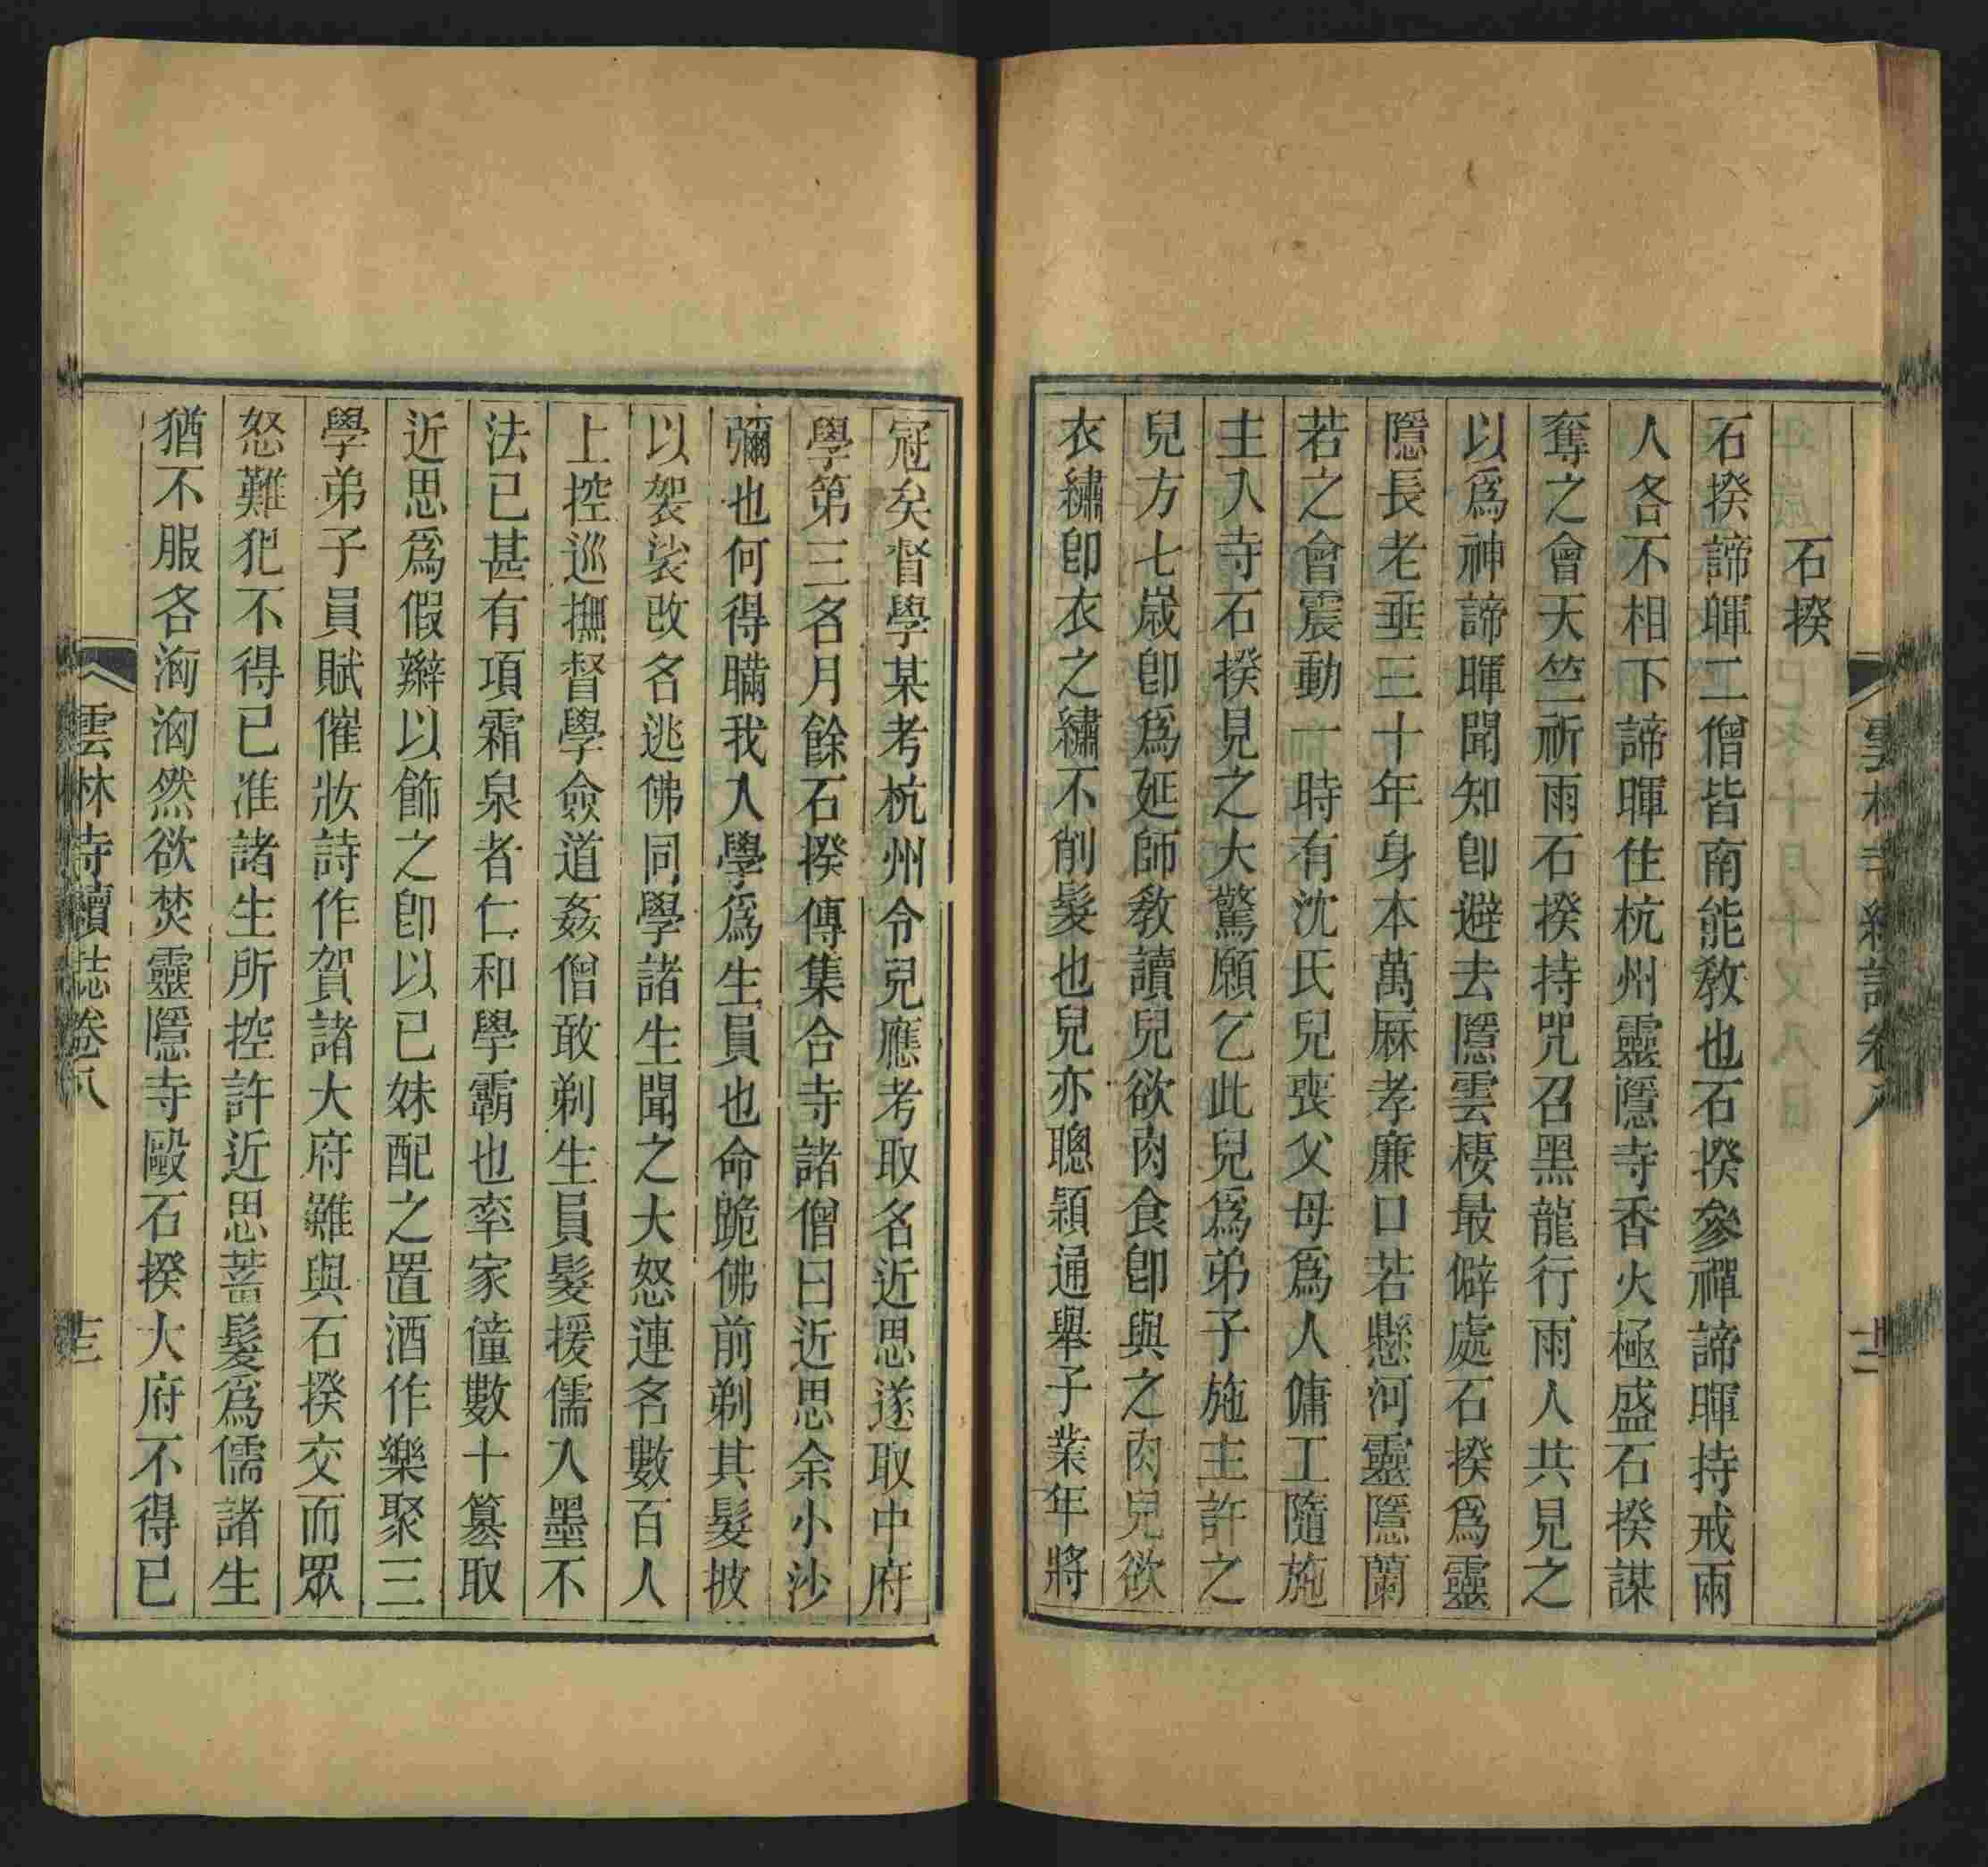 石揆
石揆諦暉二僧皆南能敎也石揆參禪諦暉持戒兩
人各不相下諦暉住杭州靈隱寺香火極盛石揆謀
奪之會天竺祈雨石揆持咒召黑龍行雨人共見之
以爲神諦暉聞知卽避去隱雲棲最僻處石揆爲靈
隱長老垂三十年身本萬厤孝廉口若懸河靈隱蘭
若之會震動一時有沈氏兒喪父母爲人傭工隨施
主入寺石揆見之大驚願乞此兒爲弟子施主許之
兒方七歲卽爲延師敎讀兒欲肉食卽與之肉兒欲
衣繡卽衣之繡不削髮也兒亦聰穎通舉子業年將
冠矣督學某考杭州令兒應考取名近思遂取中府
學第三名月餘石揆傳集合寺諸僧曰近思余小沙
彌也何得瞞我入學爲生員也命跪佛前剃其髮披
以袈裟改名逃佛同學諸生聞之大怒連名數百人
上控巡撫督學僉道姦僧敢剃生員髮援儒入墨不
法已甚有項霜泉者仁和學霸也率家僮數十篡取
近思爲假辮以飾之卽以已妹配之置酒作樂聚三
學弟子員賦催妝詩作賀諸大府雖與石揆交而眾
怒難犯不得已准諸生所控許近思蓄髮爲儒諸生
猶不服各洶洶然欲焚靈隱寺毆石揆大府不得已
雲林寺續誌卷八